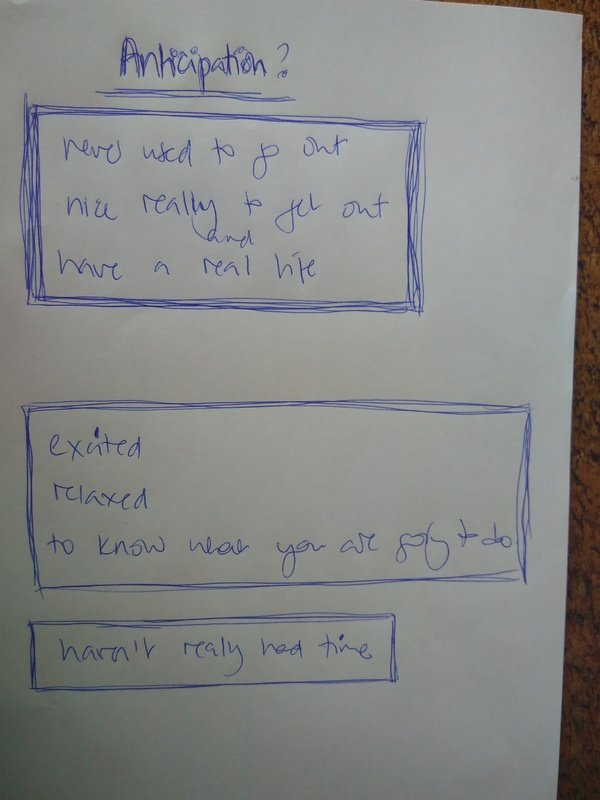 Anticipation?
never used to go out
nice really to get out
and
have a real life
excited
relaxed
to know what you are going to do
haven't really had time